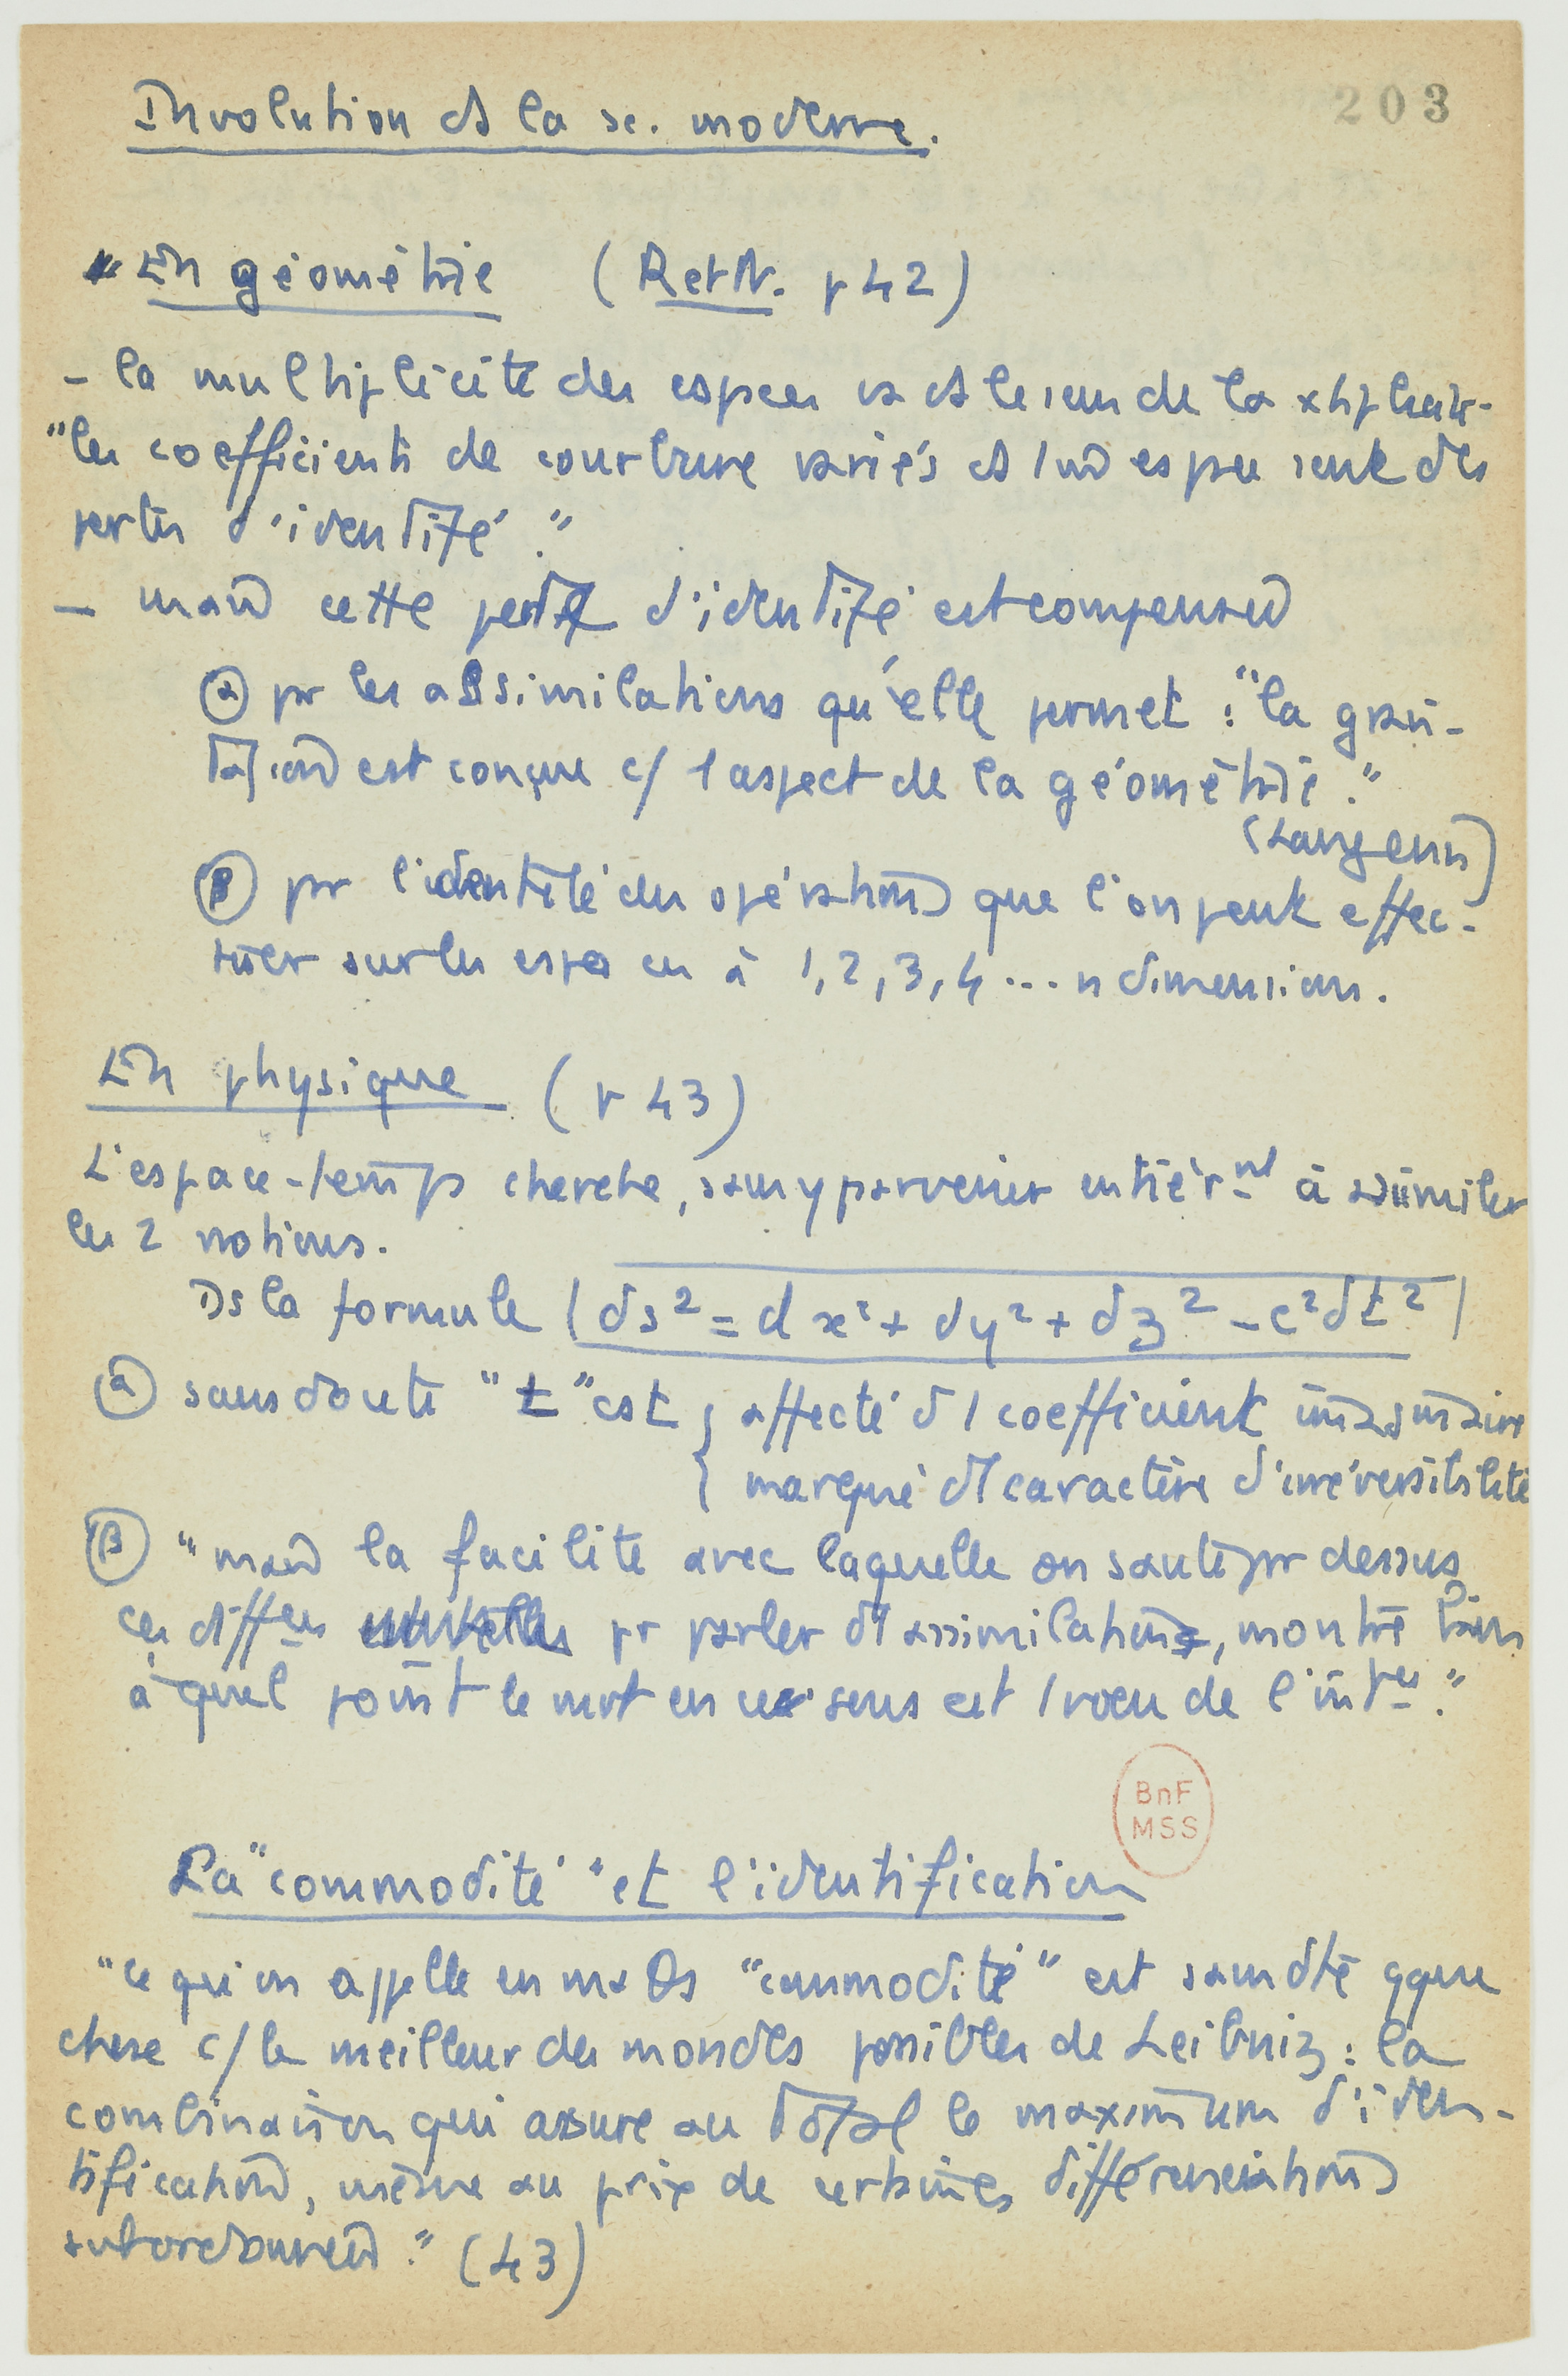 203
Involution et la sc. moderne.
En géométrie (R et N. p 42)
– la multiplicité des espaces va ds le sens de la
"les coefficients de courbure variés ds 1 md espace sont des
pertes d'identité."
– mais cette perte d'identité est compensée
α pr les assimilations qu'elle permet : "la gravi-
tation est conçue c/ 1 aspect de la géométrie."
(Langevin)
β pr l'identité des opérations que l'on peut effec-
tuer sur les espaces à 1, 2, 3, 4 ... n dimensions.
En physique (p 43)
L'espace-temps cherche, sans y parvenir entièrnt à assimiler
les 2 notions.
Ds la formule ( ds² = dx² + dy² + dz² – c²dt² )
α sans doute "t" est { affecté d'1 coefficient imaginaire
{ marqué d'1 caractère d'irréversibilité
β "mais la facilité avec laquelle on saute pr dessus
ces difftes pr parler d'1 assimilation, montre bien
à quel point le mot en ce sens est 1 voeu de l'
La "commodité" et l'identification
"ce qu'on appelle en maths "commodité" est sans dte qque
chose c/ le meilleur des mondes possibles de Leibniz : la
combinaison qui assure au total le maximum d'iden-
tification, même au prix de certaines différenciations
subordonnées." (43)
BnF
MSS